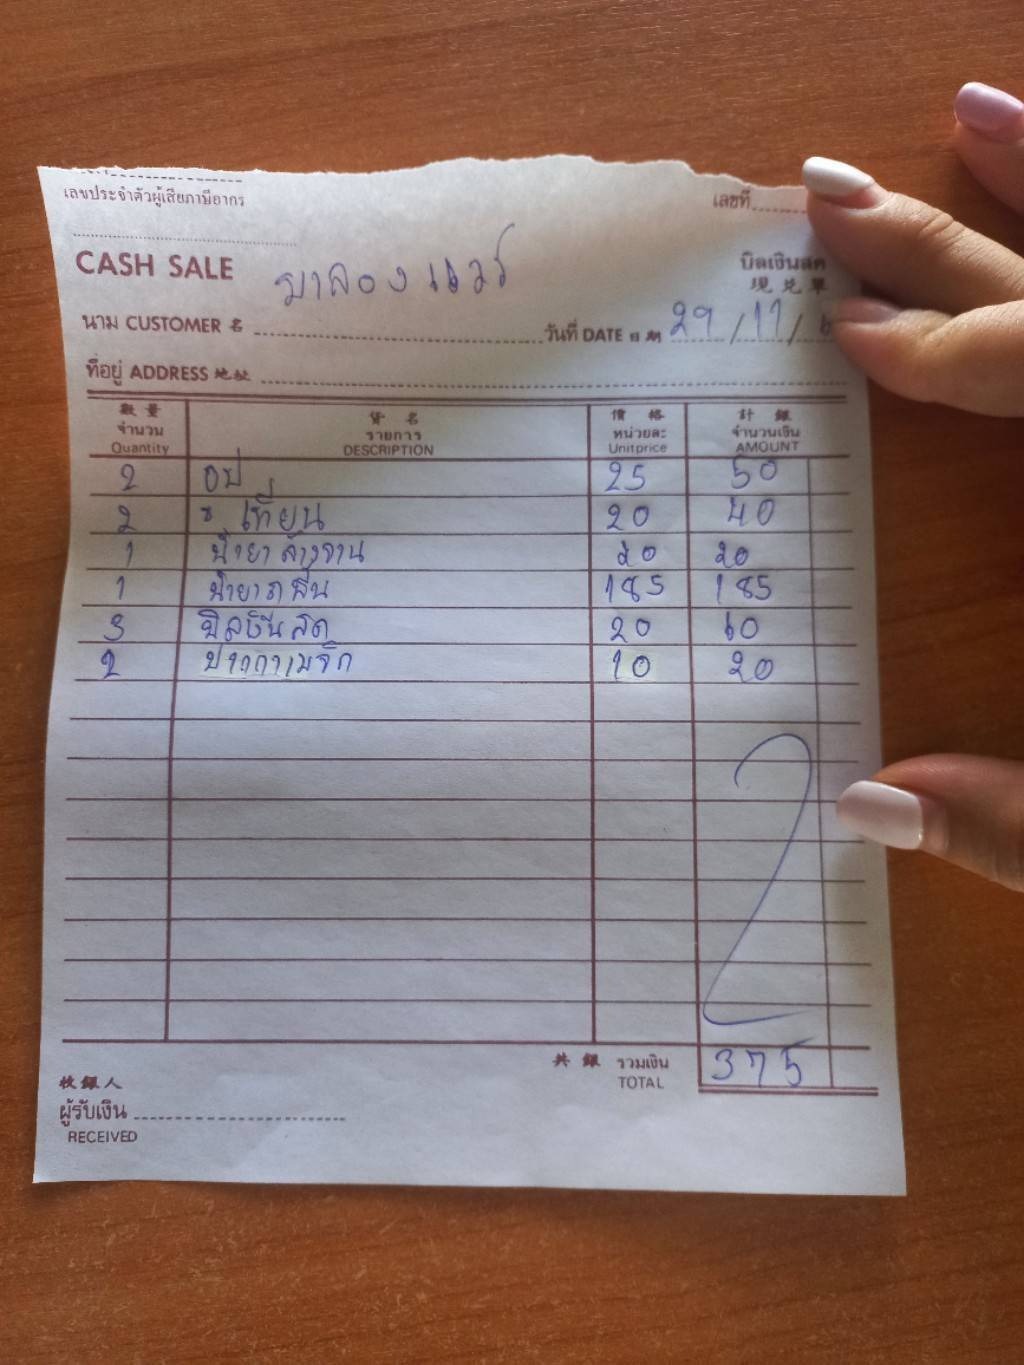 เลขประจำตัวผู้เสียภาษีอากร
เลขที่
CASH SALE
บิลเงินสด
現兌單
นาม CUSTOMER 名
วันที่ DATE 日期 29/11/
ที่อยู่ ADDRESS 地址
數量 貨名 價格 計銀
จำนวน รายการ หน่วยละ จำนวนเงิน
Quantity DESCRIPTION Unitprice AMOUNT
2 25 50
2 เทียน 20 40
1 น้ำยาล้างจาน 20 20
1 185 185
3 บิลเงินสด 20 60
2 ปากกาเมจิก 10 20
共銀 รวมเงิน 375
TOTAL
收銀人
ผู้รับเงิน
RECEIVED